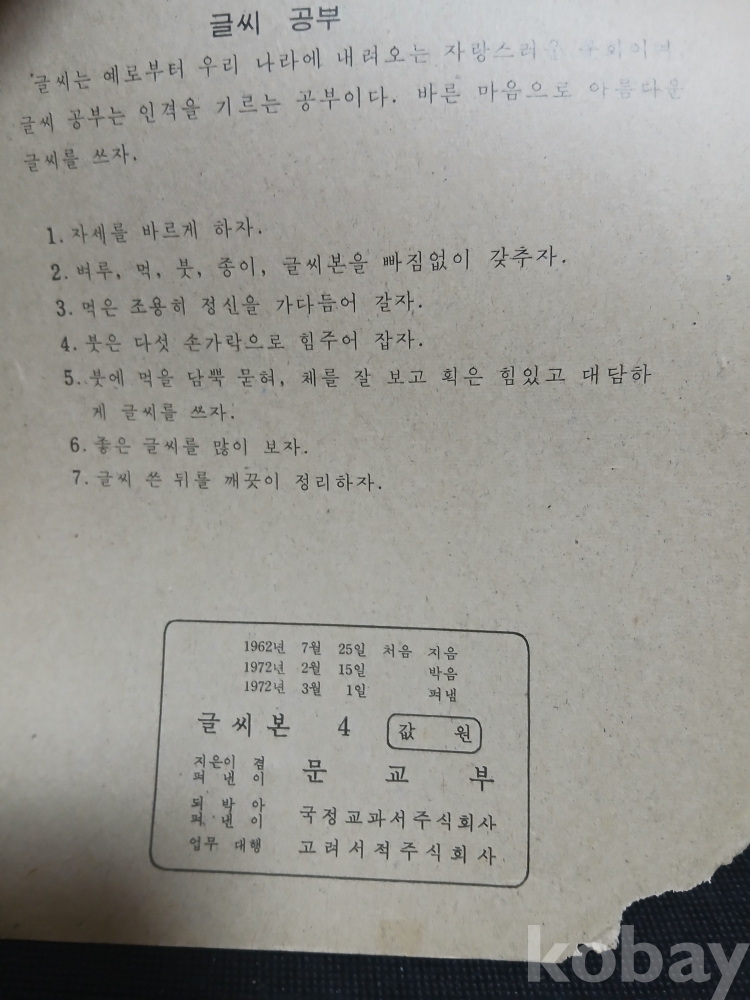 글씨 공부
글씨는 예로부터 우리 나라에 내려오는 자랑스러운
글씨 공부는 인격을 기르는 공부이다. 바른 마음으로 아름다운
글씨를 쓰자.
1. 자세를 바르게 하자.
2. 벼루, 먹, 붓, 종이, 글씨본을 빠짐없이 갖추자.
3. 먹은 조용히 정신을 가다듬어 갈자.
4. 붓은 다섯 손가락으로 힘주어 잡자.
5. 붓에 먹을 담뿍 묻혀, 체를 잘 보고 획은 힘있고 대담하
게 글씨를 쓰자.
6. 좋은 글씨를 많이 보자.
7. 글씨 쓴 뒤를 깨끗이 정리하자.
1962년 7월 25일 처음 지음
1972년 2월 15일 박음
1972년 3월 1일 펴냄
글씨본 4 값 원
지은이 겸
펴낸이 문교부
되박아
펴낸이 국정교과서주식회사
업무 대행 고려서적주식회사
kobay